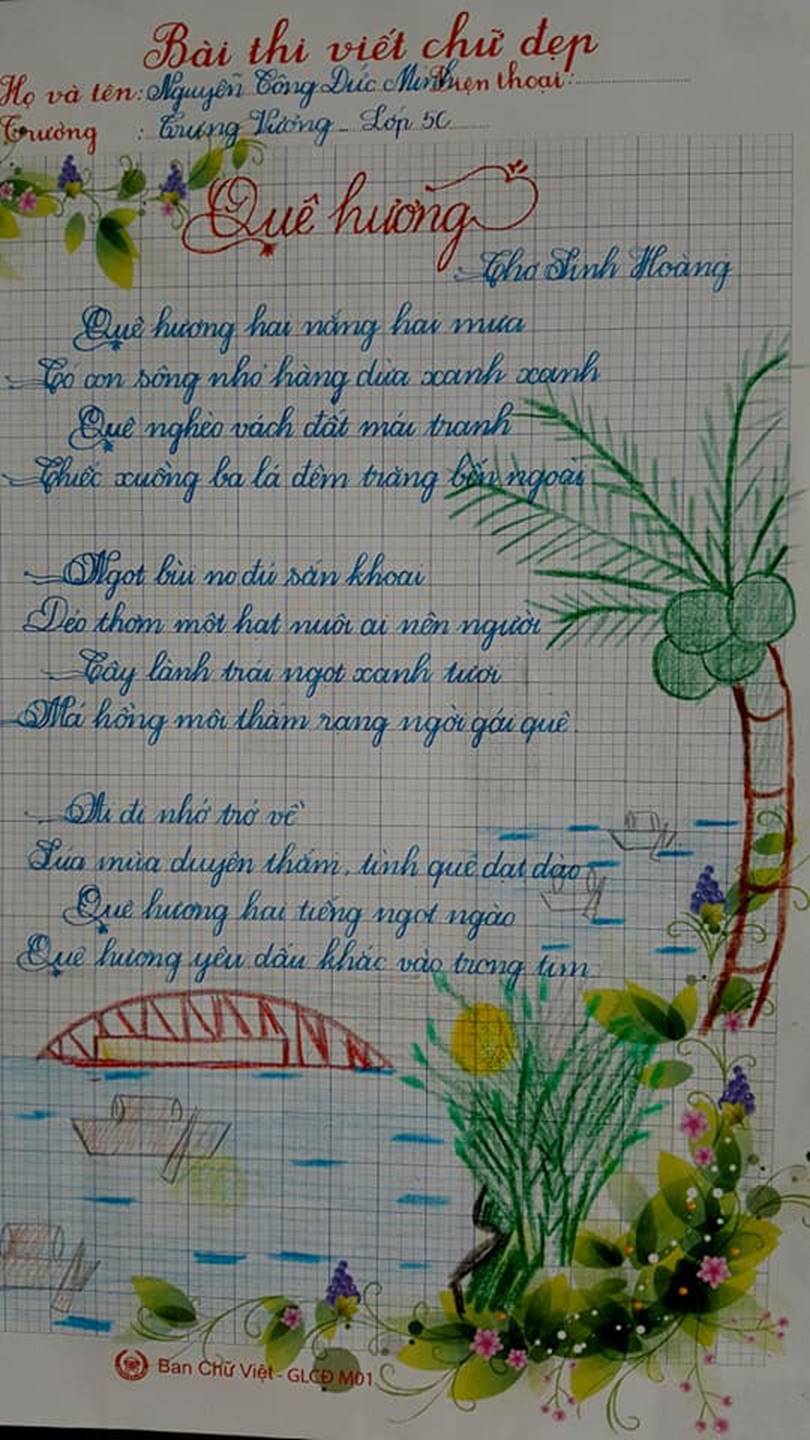 Bài thi viết chữ đẹp
Họ và tên: Nguyễn Công Đức Minh Điện thoại:
Trường : Trưng Vương - Lớp 5C
Quê hương
Thơ Sinh Hoàng
Quê hương hai nắng hai mưa
Có con sông nhỏ hàng dừa xanh xanh
Quê nghèo vách đất mái tranh
Chiếc xuồng ba lá đêm trăng bến ngoài
Ngọt bùi no đủ sắn khoai
Dẻo thơm một hạt nuôi ai nên người
Cây lành trái ngọt xanh tươi
Má hồng môi thắm rạng ngời gái quê
Ai đi nhớ trở về
Lúa mùa duyên thắm, tình quê dạt dào
Quê hương hai tiếng ngọt ngào
Quê hương yêu dấu khắc vào trong tim
Ban Chữ Việt - GLCĐ M01